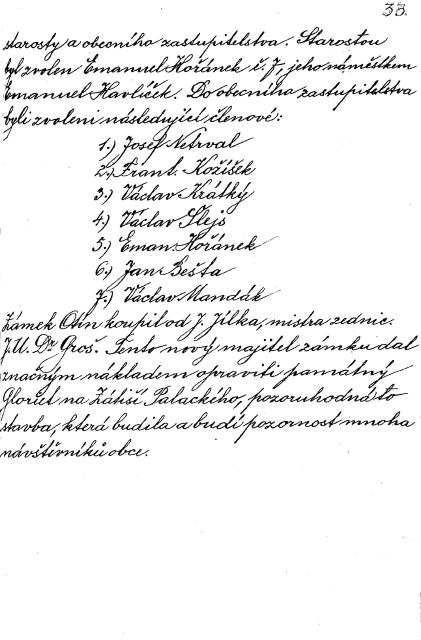 33.
starosty a obecního zastupitelstva. Starostou
byl zvolen Emanuel Hořánek č. 7, jeho náměstkem
Emanuel Havlíček. Do obecního zastupitelstva
byli zvoleni následující členové:
1.) Josef Netrval
2.) Frant. Kožíšek
3.) Václav Krátký
4.) Václav Šlejs
5.) Eman. Hořánek
6.) Jan Bešta
7.) Václav Mandák
Zámek Otín koupil od J. Jílka, mistra zednic.
J.U. Dr Groš. Tento nový majitel zámku dal
značným nákladem opraviti památný
Gloriet na Zátiší Palackého, pozoruhodná to
stavba, která budila a budí pozornost mnoha
návštěvníků obce.